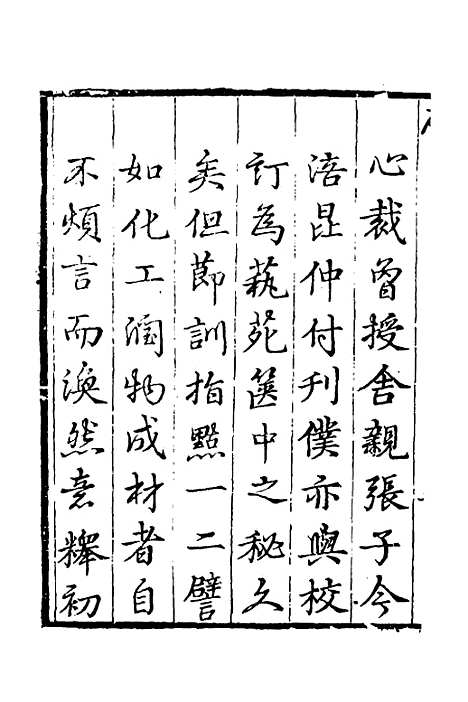 心裁曾授舍親張子今
涪昆仲付刋僕亦與校
訂為蓺苑篋中之秘久
矣但節訓指點一二譬
如化工酒物成材者自
不煩言而渙然意釋初